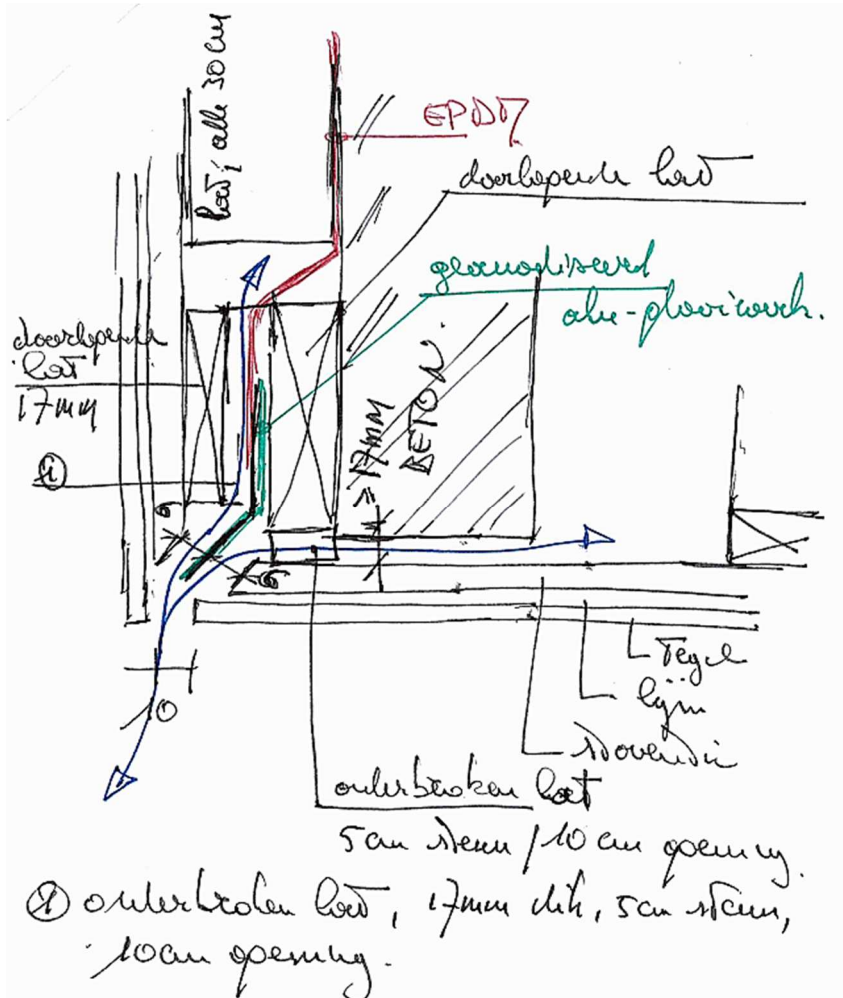 lat; alle 30 cm
EPDM
doorlopende lat
geanodiseerd
alu-plooiwerk.
doorlopende
lat
17mm
1
≥ 17mm
BETON.
6
6
10
Tegel
lijm
onderbroken lat
5cm steun / 10 cm opening.
① onderbroken lat, 17mm dik, 5cm steun,
10cm opening.